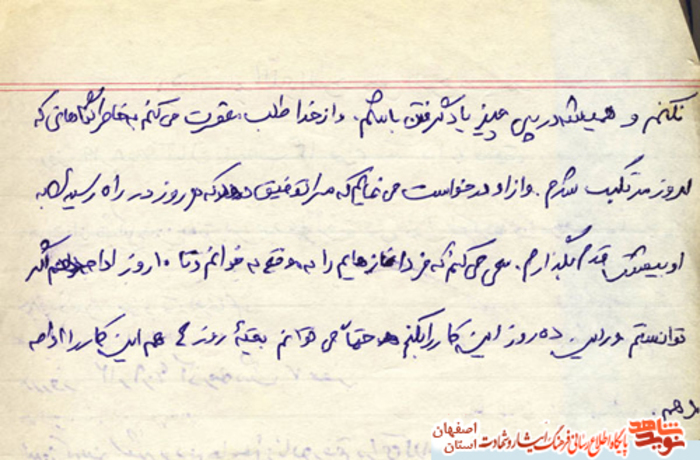 نکنم و همیشه در پی چیز یاد گرفتن باشم. و از خدا طلب مغفرت می کنم به خاطر گناهانی که
امروز مرتکب شدم. و از او درخواست می نمایم که مرا توفیق دهد که هر روز در راه رسیدن به
او بیشتر قدم بگذارم. سعی می کنم که فردا نمازهایم را به موقع به خوانم و تا ۱۰ روز ادامه دهم اگر
توانستم در این ده روز این کار را بکنم حتماً می توانم بقیهٔ روز ها هم این کار را ادامه
دهم.
نوید شاهد
پایگاه اطلاع رسانی فرهنگ ایثار و شهادت
اصفهان
استان